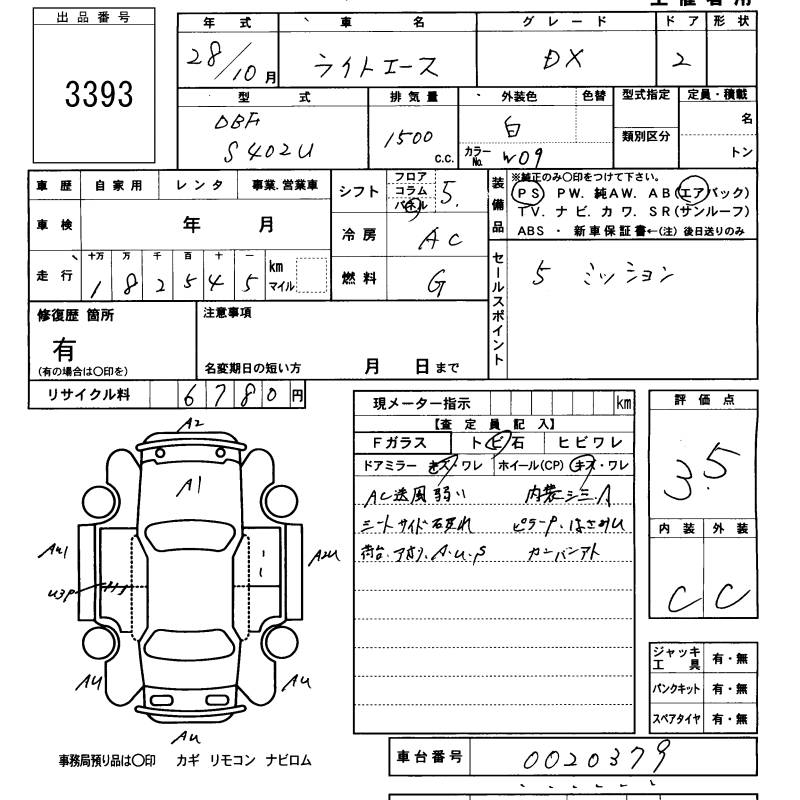 出品番号
3393
年式 車名 グレード ドア 形状
28/10月 ライトエース DX 2
型式 排気量 外装色 色替 型式指定 定員・積載
DBF S402U 1500 c.c. 白 類別区分 名
カラーNo. W09 トン
車歴 自家用 レンタ 事業.営業車
シフト フロア コラム パネル 5.
装備品 ※純正のみ〇印をつけて下さい。
PS PW. 純AW. AB(エアバック)
TV. ナビ. カワ. SR(サンルーフ)
ABS ・ 新車保証書←(注) 後日送りのみ
車検 年 月
冷房 AC
走行 十万 万 千 百 十 一
182545 km マイル
燃料 G
セールスポイント 5 ミッション
修復歴 箇所
有
(有の場合は〇印を)
注意事項
名変期日の短い方 月 日まで
リサイクル料 6780円
現メーター指示 km
【査定員記入】
Fガラス トビ石 ヒビワレ
ドアミラー キズ・ワレ ホイール(CP) キズ・ワレ
AC送風弱い 内装シミ.A
シートサイド
荷台. A.U.S
評価点
3.5
内装 外装
C C
A2
A1
AU1
A2U
U3P
AU
AU
AU
ジャッキ工具 有・無
パンクキット 有・無
スペアタイヤ 有・無
事務局預り品は〇印 カギ リモコン ナビロム
車台番号 0020379